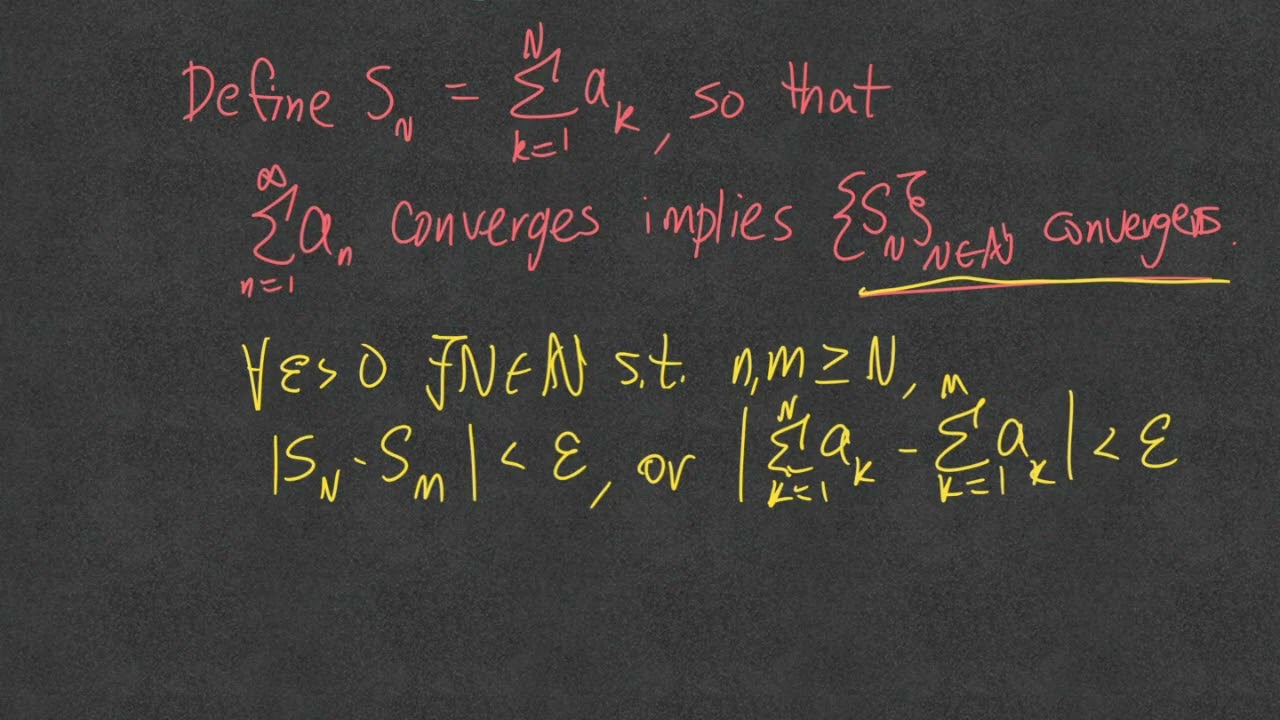 Define S_N = ∑_{k=1}^{N} a_k, so that
∑_{n=1}^{∞} a_n converges implies {S_N}_{N∈ℕ} converges.
∀ε>0 ∃N∈ℕ s.t. n,m ≥ N,
|S_N - S_m| < ε, or |∑_{k=1}^{N} a_k - ∑_{k=1}^{m} a_k| < ε